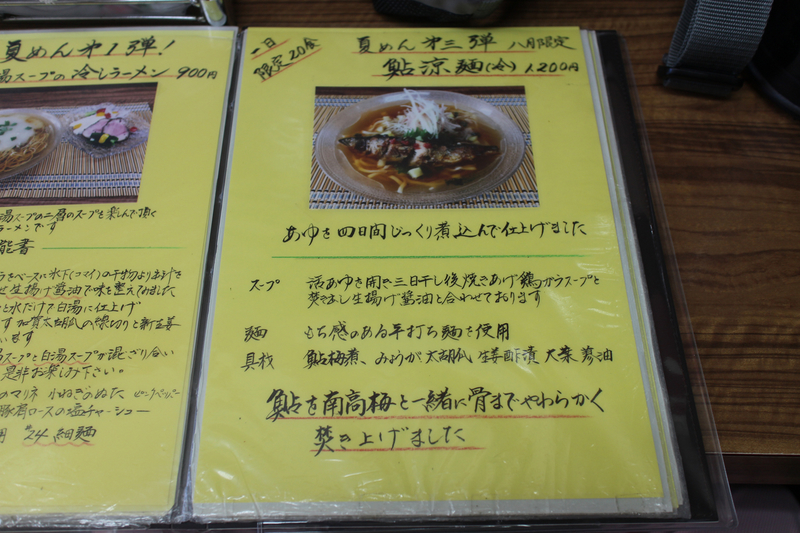 夏めん第1弾!
湯スープの冷しラーメン 900円
湯スープの二層のスープを楽しんで頂く
ラーメンです
能書
をベースに氷下(コマイ)の干物よりあげ
生揚げ醤油で味を整えてみました
と水だけで白湯に仕上げ
す 加賀太胡瓜の線切りと新生姜
スープと白湯スープが混ざり合い
是非お楽しみ下さい。
のマリネ 小ねぎのぬた ピンクペッパー
豚肩ロースの塩チャーシュー
用 #24 細麺
一日
限定20食
夏めん第三弾 八月限定
鮎涼麺(冷) 1,200円
あゆを四日間じっくり煮込んで仕上げました
スープ 活あゆを開き三日干し後焼きあげ鶏ガラスープと
焚きまし生揚げ醤油と合わせております
麺 もち感のある平打ち麺を使用
具材 鮎梅煮、みょうが 太胡瓜 生姜酢漬 大葉 醤油
鮎を南高梅と一緒に骨までやわらかく
焚き上げました